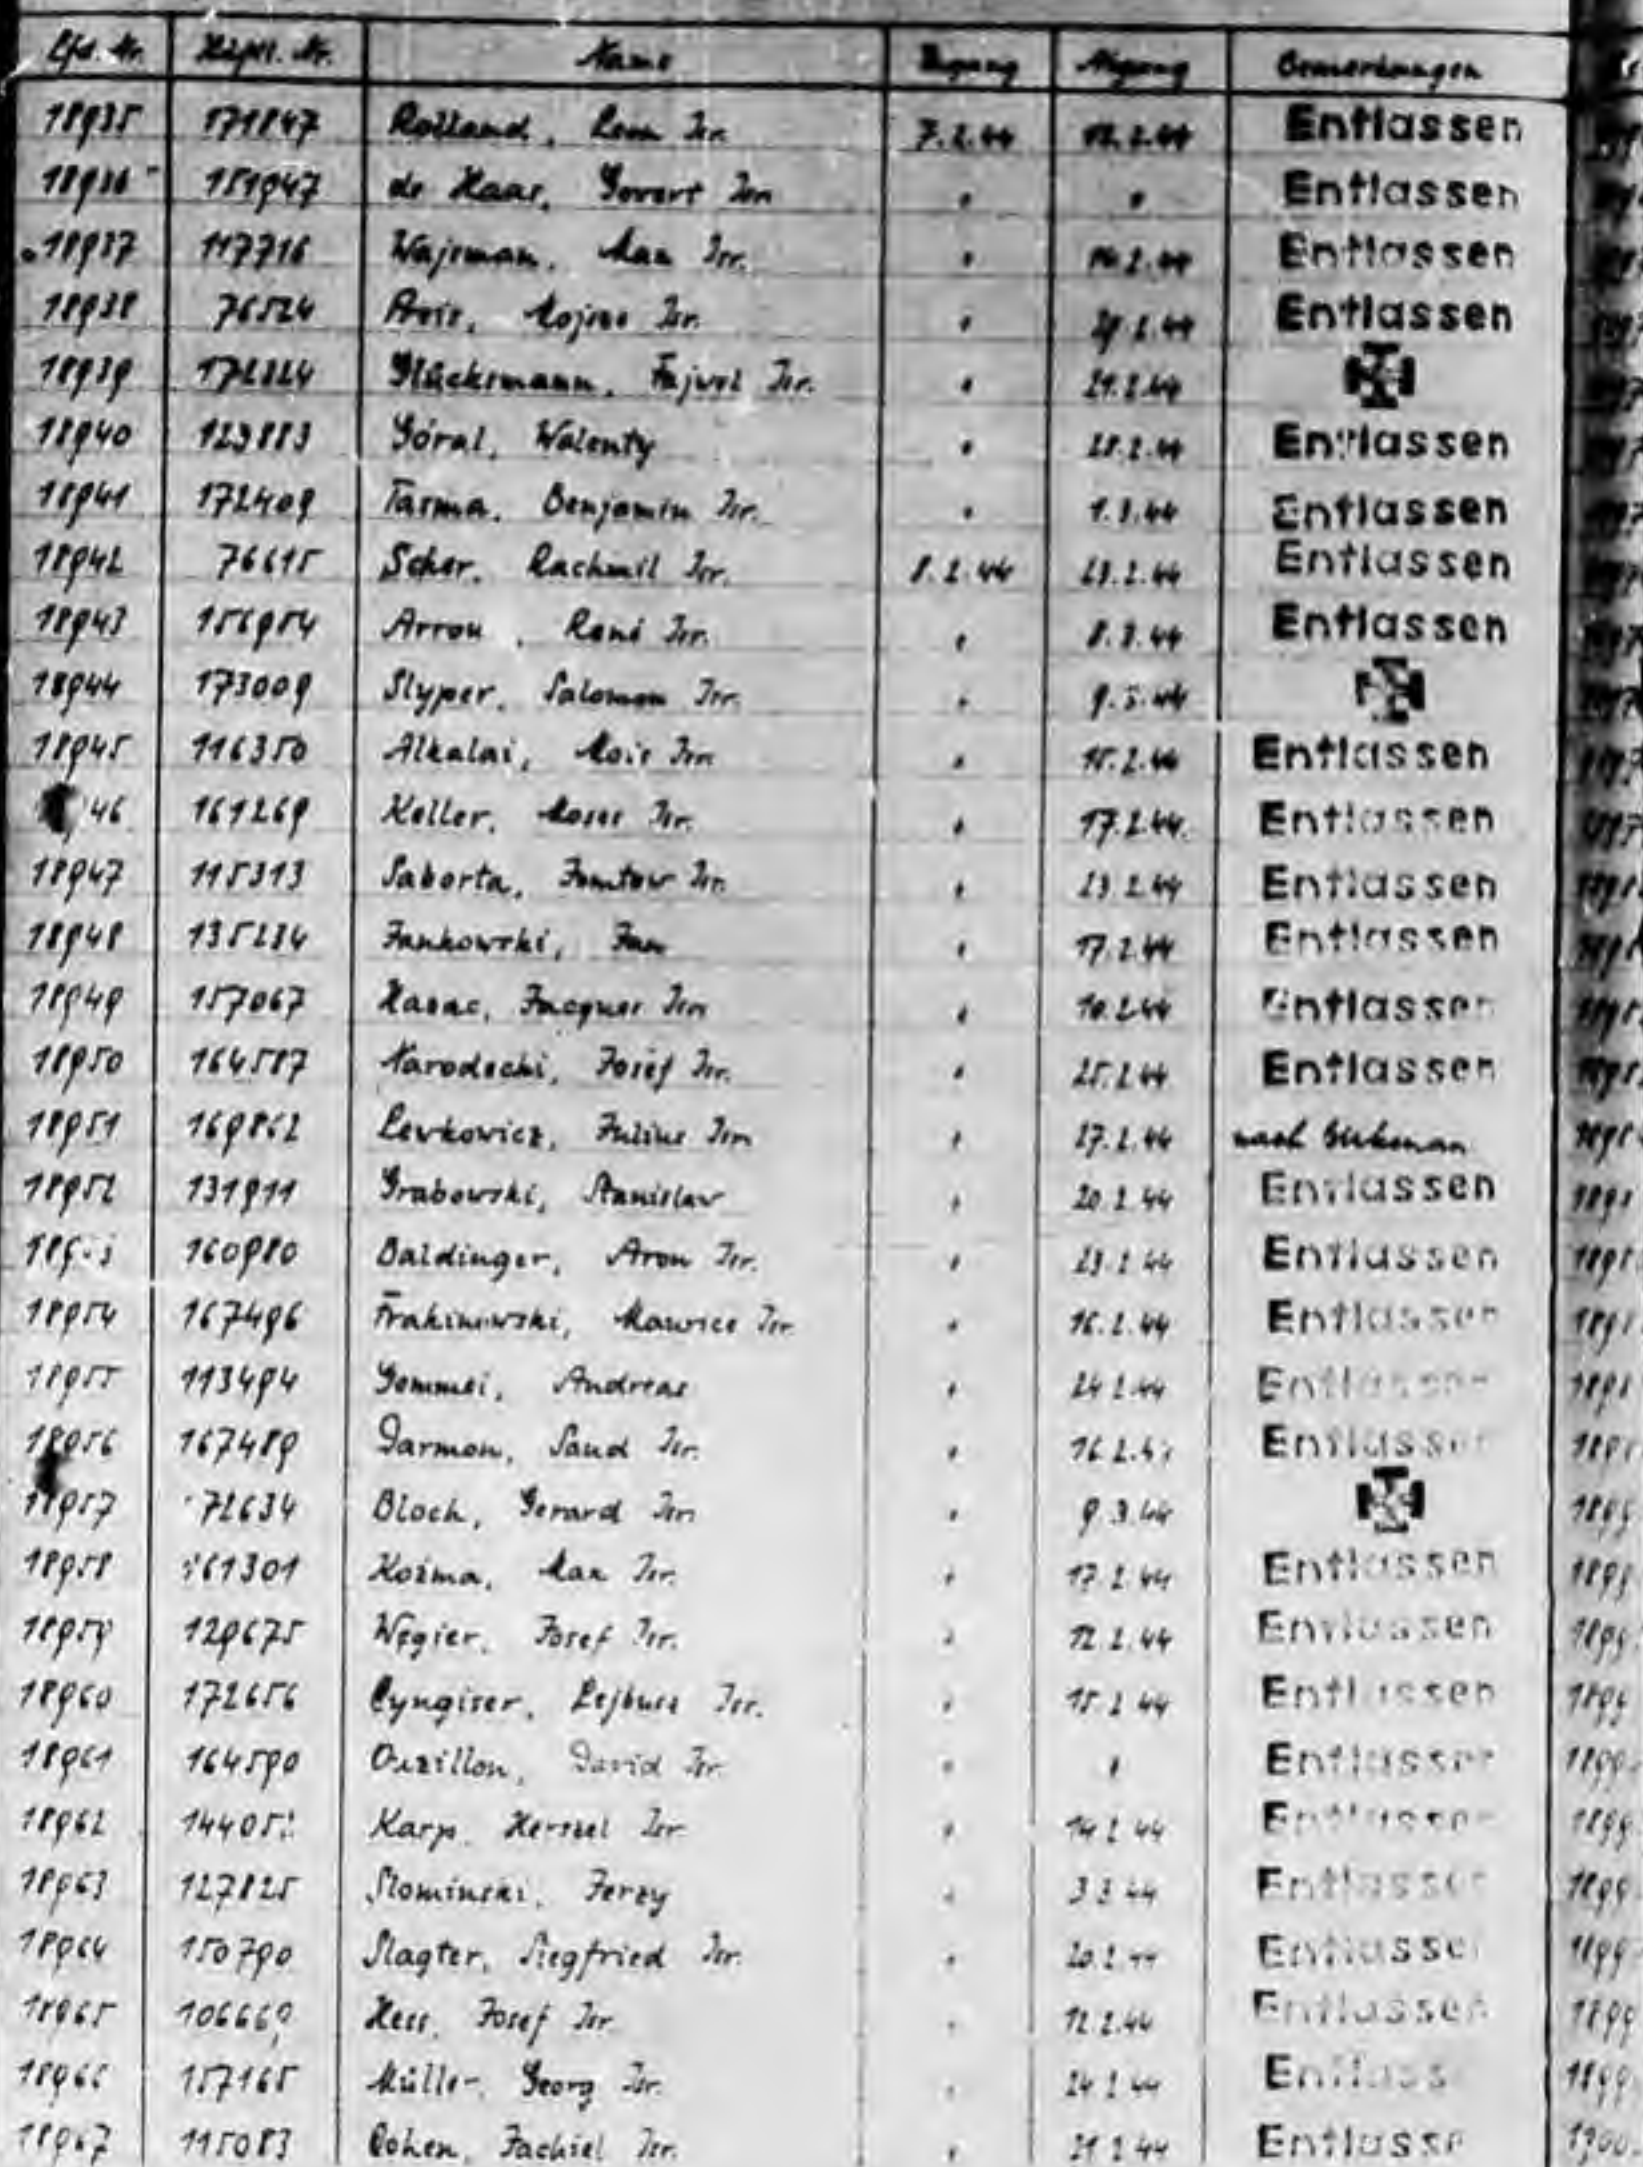 Lfd. Nr. Häftl. Nr. Name Zugang Abgang Bemerkungen
18935 171847 Rolland, Leon Isr. 7.2.44 12.2.44 Entlassen
18936 151947 de Haas, Govert Isr. " " Entlassen
18937 117716 Wajsman, Max Isr. " 14.2.44 Entlassen
18938 76524 Isr. " 29.2.44 Entlassen
18939 172324 Glücksmann, Fajwel Isr. " 21.2.44
18940 123883 Góral, Walenty " 28.2.44 Entlassen
18941 172409 Tasma, Benjamin Isr. " 1.3.44 Entlassen
18942 76615 Scher, Rachmil Isr. 8.2.44 23.2.44 Entlassen
18943 156954 Arrou, René Isr. " 8.3.44 Entlassen
18944 173009 Slyper, Salomon Isr. " 9.3.44
18945 116350 Alkalai, Mois Isr. " 15.2.44 Entlassen
46 161269 Keller, Moses Isr. " 17.2.44. Entlassen
18947 115313 Saborta, Jomtow Isr. " 23.2.44 Entlassen
18948 135234 Jankowski, Jan " 17.2.44 Entlassen
18949 157067 Hasac, Jacques Isr. " 10.2.44 Entlassen
18950 164587 Narodecki, Josef Isr. " 25.2.44 Entlassen
18951 169862 Lewkowicz, Julius Isr. " 27.2.44 nach Birkenau
18952 131911 Grabowski, Stanislaw " 20.2.44 Entlassen
160980 Baldinger, Aron Isr. " 23.2.44 Entlassen
18954 167496 Maurice Isr. " 16.2.44 Entlassen
18955 113494 Gommei, Andreas " 24.2.44 Entlassen
18956 167489 Darmon, Saud Isr. " 16.2.44 Entlassen
18957 72634 Bloch, Gerard Isr. " 9.3.44
18958 161301 Kozma, Max Isr. " 17.2.44 Entlassen
18959 129675 Węgier, Josef Isr. " 12.2.44 Entlassen
18960 172656 Cyngiser, Lejbus Isr. " 15.2.44 Entlassen
18961 164590 Ouzillon, David Isr. " " Entlassen
18962 Karp, Herszel Isr. " 14.2.44 Entlassen
18963 127825 Slominski, Jerzy " 3.3.44 Entlassen
18964 150790 Slagter, Siegfried Isr. " 20.2.44 Entlassen
18965 106669 Hess, Josef Isr. " 12.2.44 Entlassen
18966 157165 Müller, Georg Isr. " 24.2.44 Entlass
18967 115083 Cohen, Jachiel Isr. " 21.2.44 Entlasse